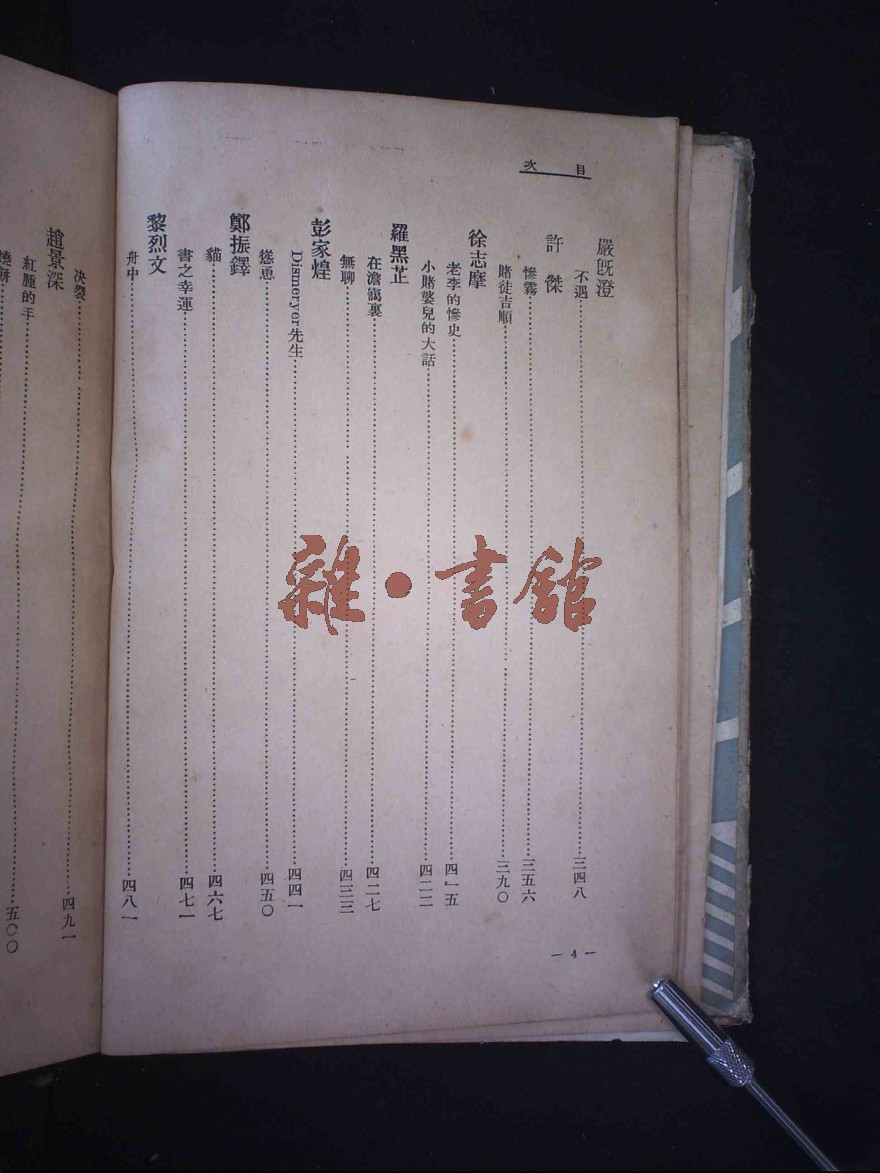 目次
嚴既澄
不遇……三四八
許傑
慘霧……三五六
賭徒吉順……三九〇
徐志摩
老李的慘史……四一五
小賭婆兒的大話……四二二
羅黑芷
在澹靄裏……四二七
無聊……四三三
彭家煌
Dismeryer先生……四四一
慫恿……四五〇
鄭振鐸
貓……四六七
書之幸運……四七一
黎烈文
舟中……四八一
—4—
決裂……四九一
趙景深
紅腫的手……五〇〇
燒餅
雜·書館